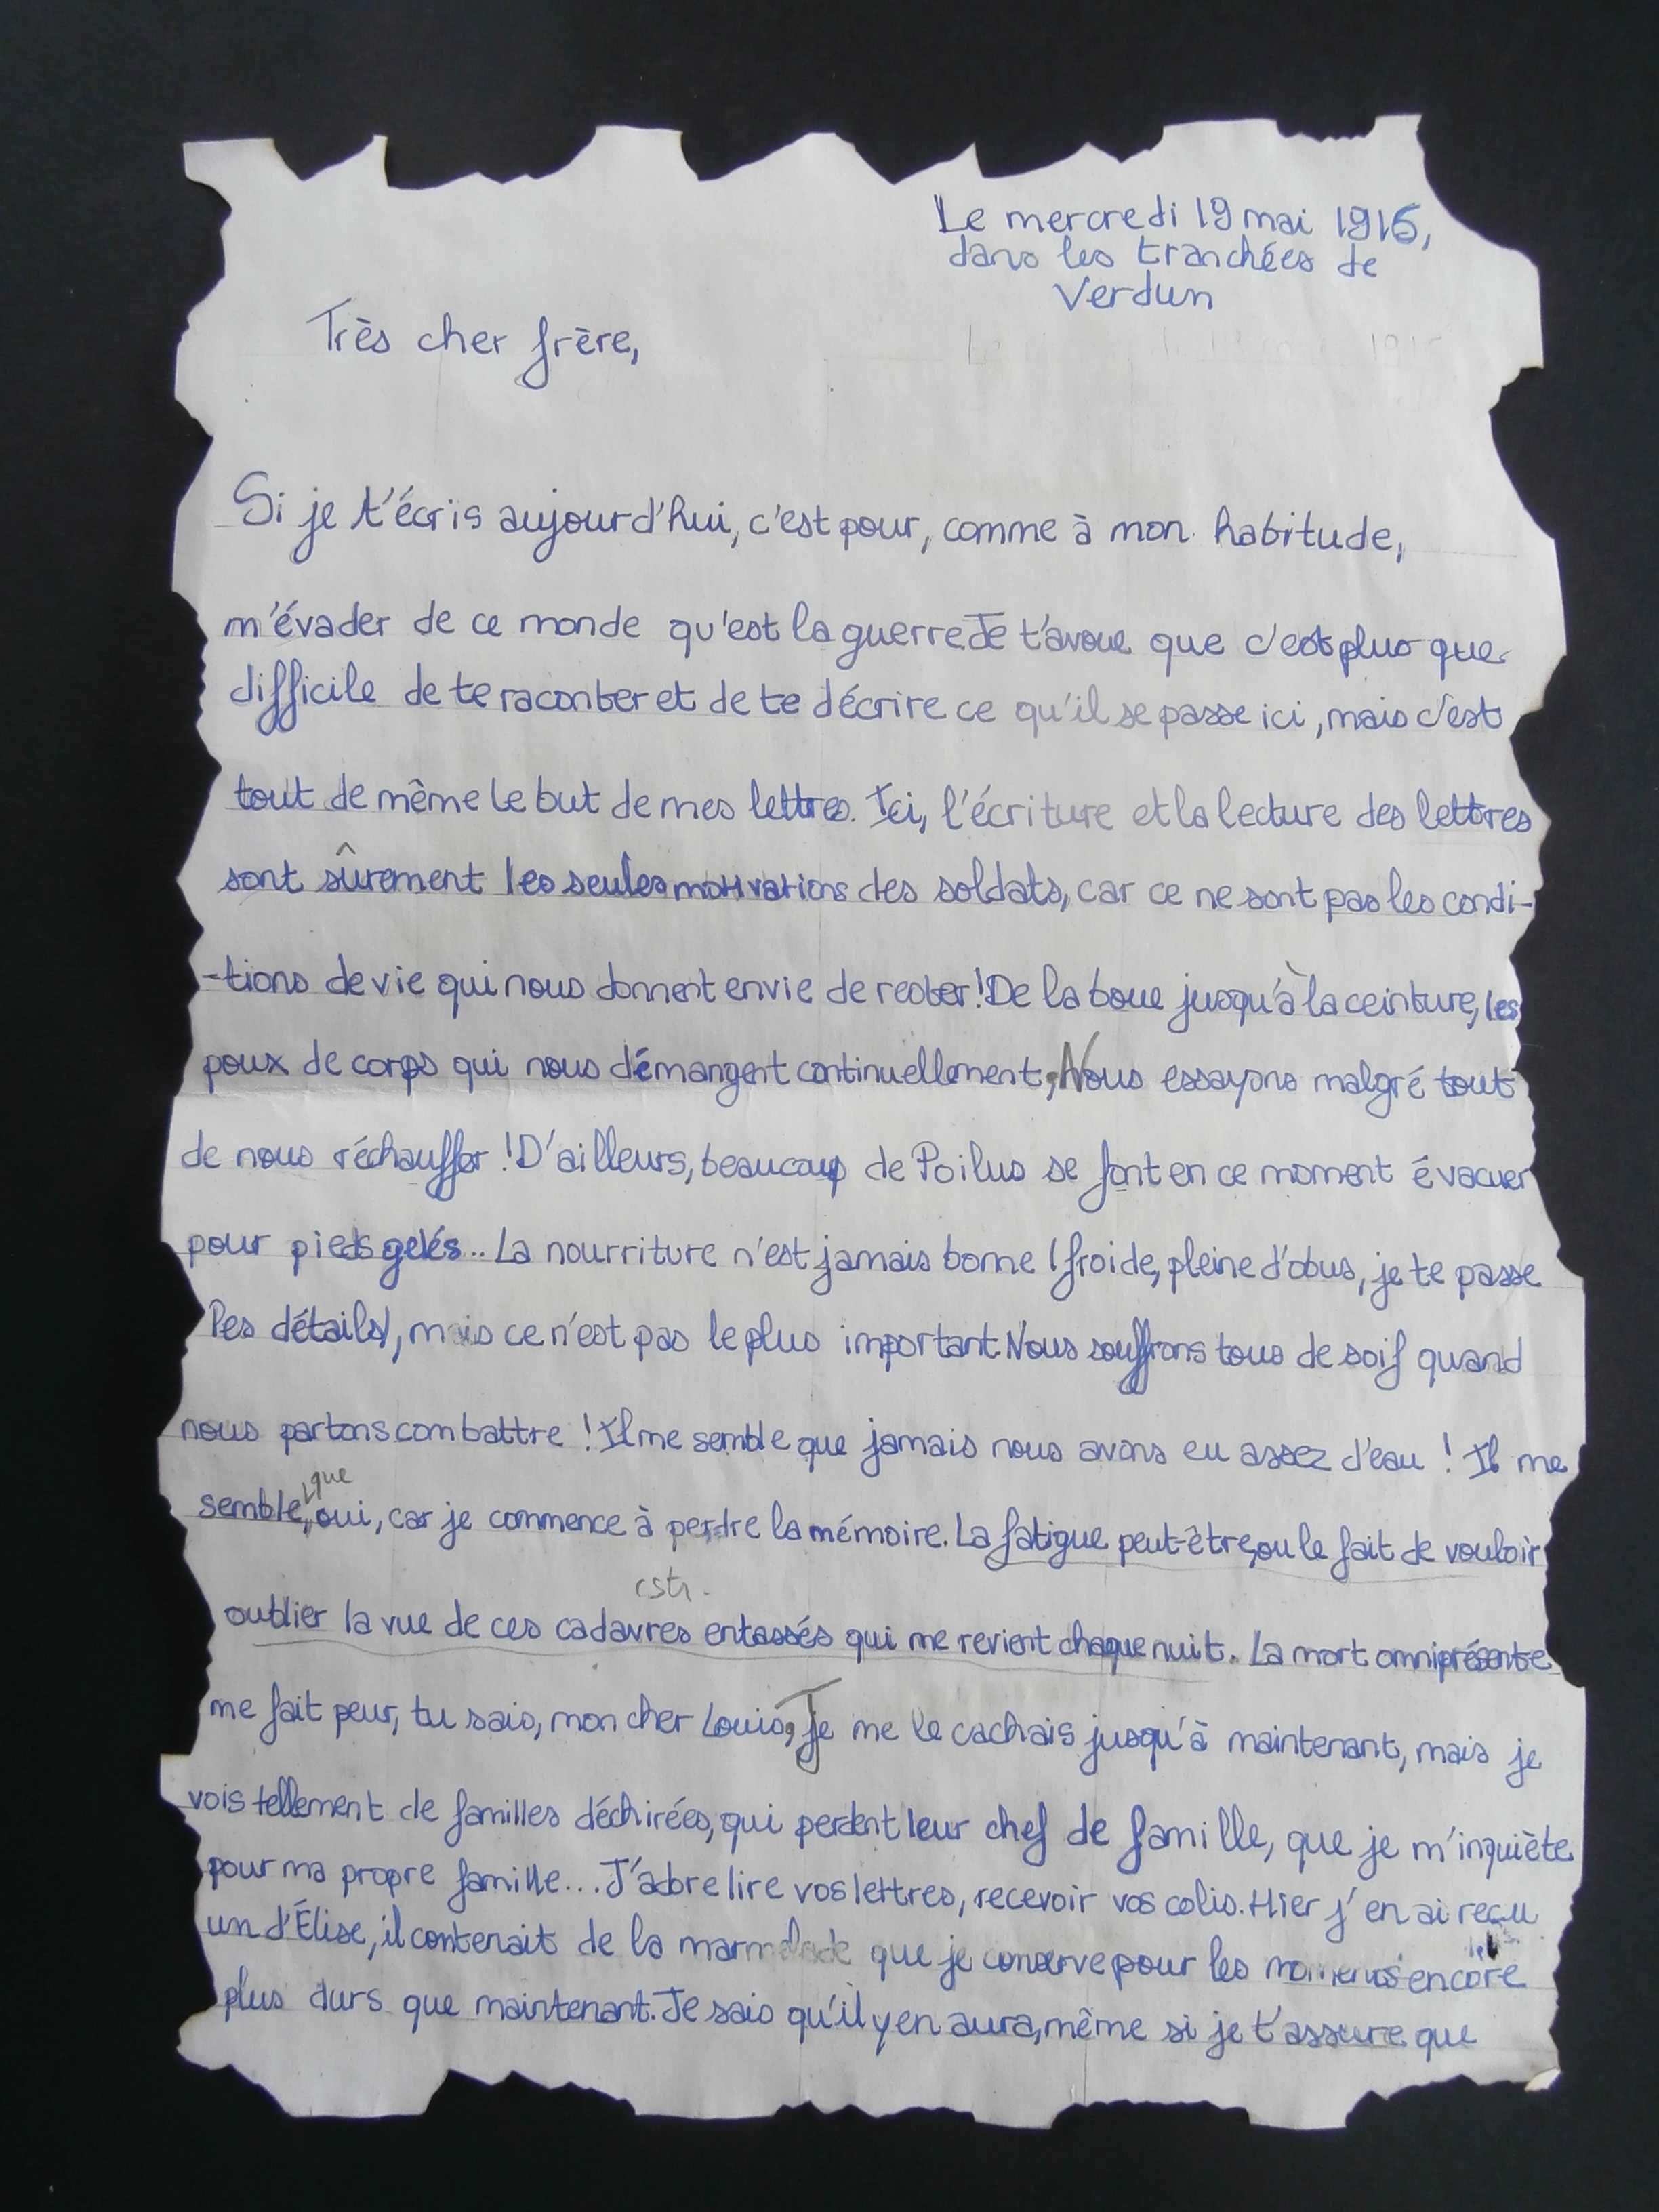 Le mercredi 19 mai 1916,
dans les tranchées de
Verdun
Très cher frère,
Si je t'écris aujourd'hui, c'est pour, comme à mon habitude,
m'évader de ce monde qu'est la guerre. Je t'avoue que c'est plus que
difficile de te raconter et de te décrire ce qu'il se passe ici, mais c'est
tout de même le but de mes lettres. Ici, l'écriture et la lecture des lettres
sont sûrement les seules motivations des soldats, car ce ne sont pas les condi-
-tions de vie qui nous donnent envie de rester! De la boue jusqu'à la ceinture, les
poux de corps qui nous démangent continuellement, Nous essayons malgré tout
de nous réchauffer ! D'ailleurs, beaucoup de Poilus se font en ce moment évacuer
pour pieds gelés... La nourriture n'est jamais bonne (froide, pleine d'obus, je te passe
les détails), mais ce n'est pas le plus important. Nous souffrons tous de soif quand
nous partons combattre ! Il me semble que jamais nous avons eu assez d'eau ! Il me
que
semble, oui, car je commence à perdre la mémoire. La fatigue peut-être, ou le fait de vouloir
cstr.
oublier la vue de ces cadavres entassés qui me revient chaque nuit. La mort omniprésente
me fait peur, tu sais, mon cher Louis, Je me le cachais jusqu'à maintenant, mais je
vois tellement de familles déchirées, qui perdent leur chef de famille, que je m'inquiète
pour ma propre famille... J'adore lire vos lettres, recevoir vos colis. Hier j'en ai reçu
un d'Élise, il contenait de la marmelade que je conserve pour les moments encore
plus durs que maintenant. Je sais qu'il y en aura, même si je t'assure que